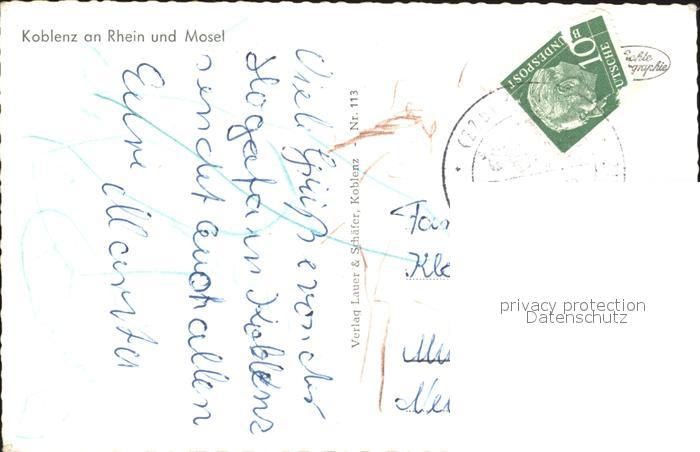 Koblenz an Rhein und Mosel
Viele Grüße von der
Koblenz
sendet euch allen
Eure Martha
Verlag Lauer & Schäfer, Koblenz - Nr. 113
10
UTSCHE
BUNDESPOST
Echte
graphie
Fam
Kle
Mü
privacy protection
Datenschutz